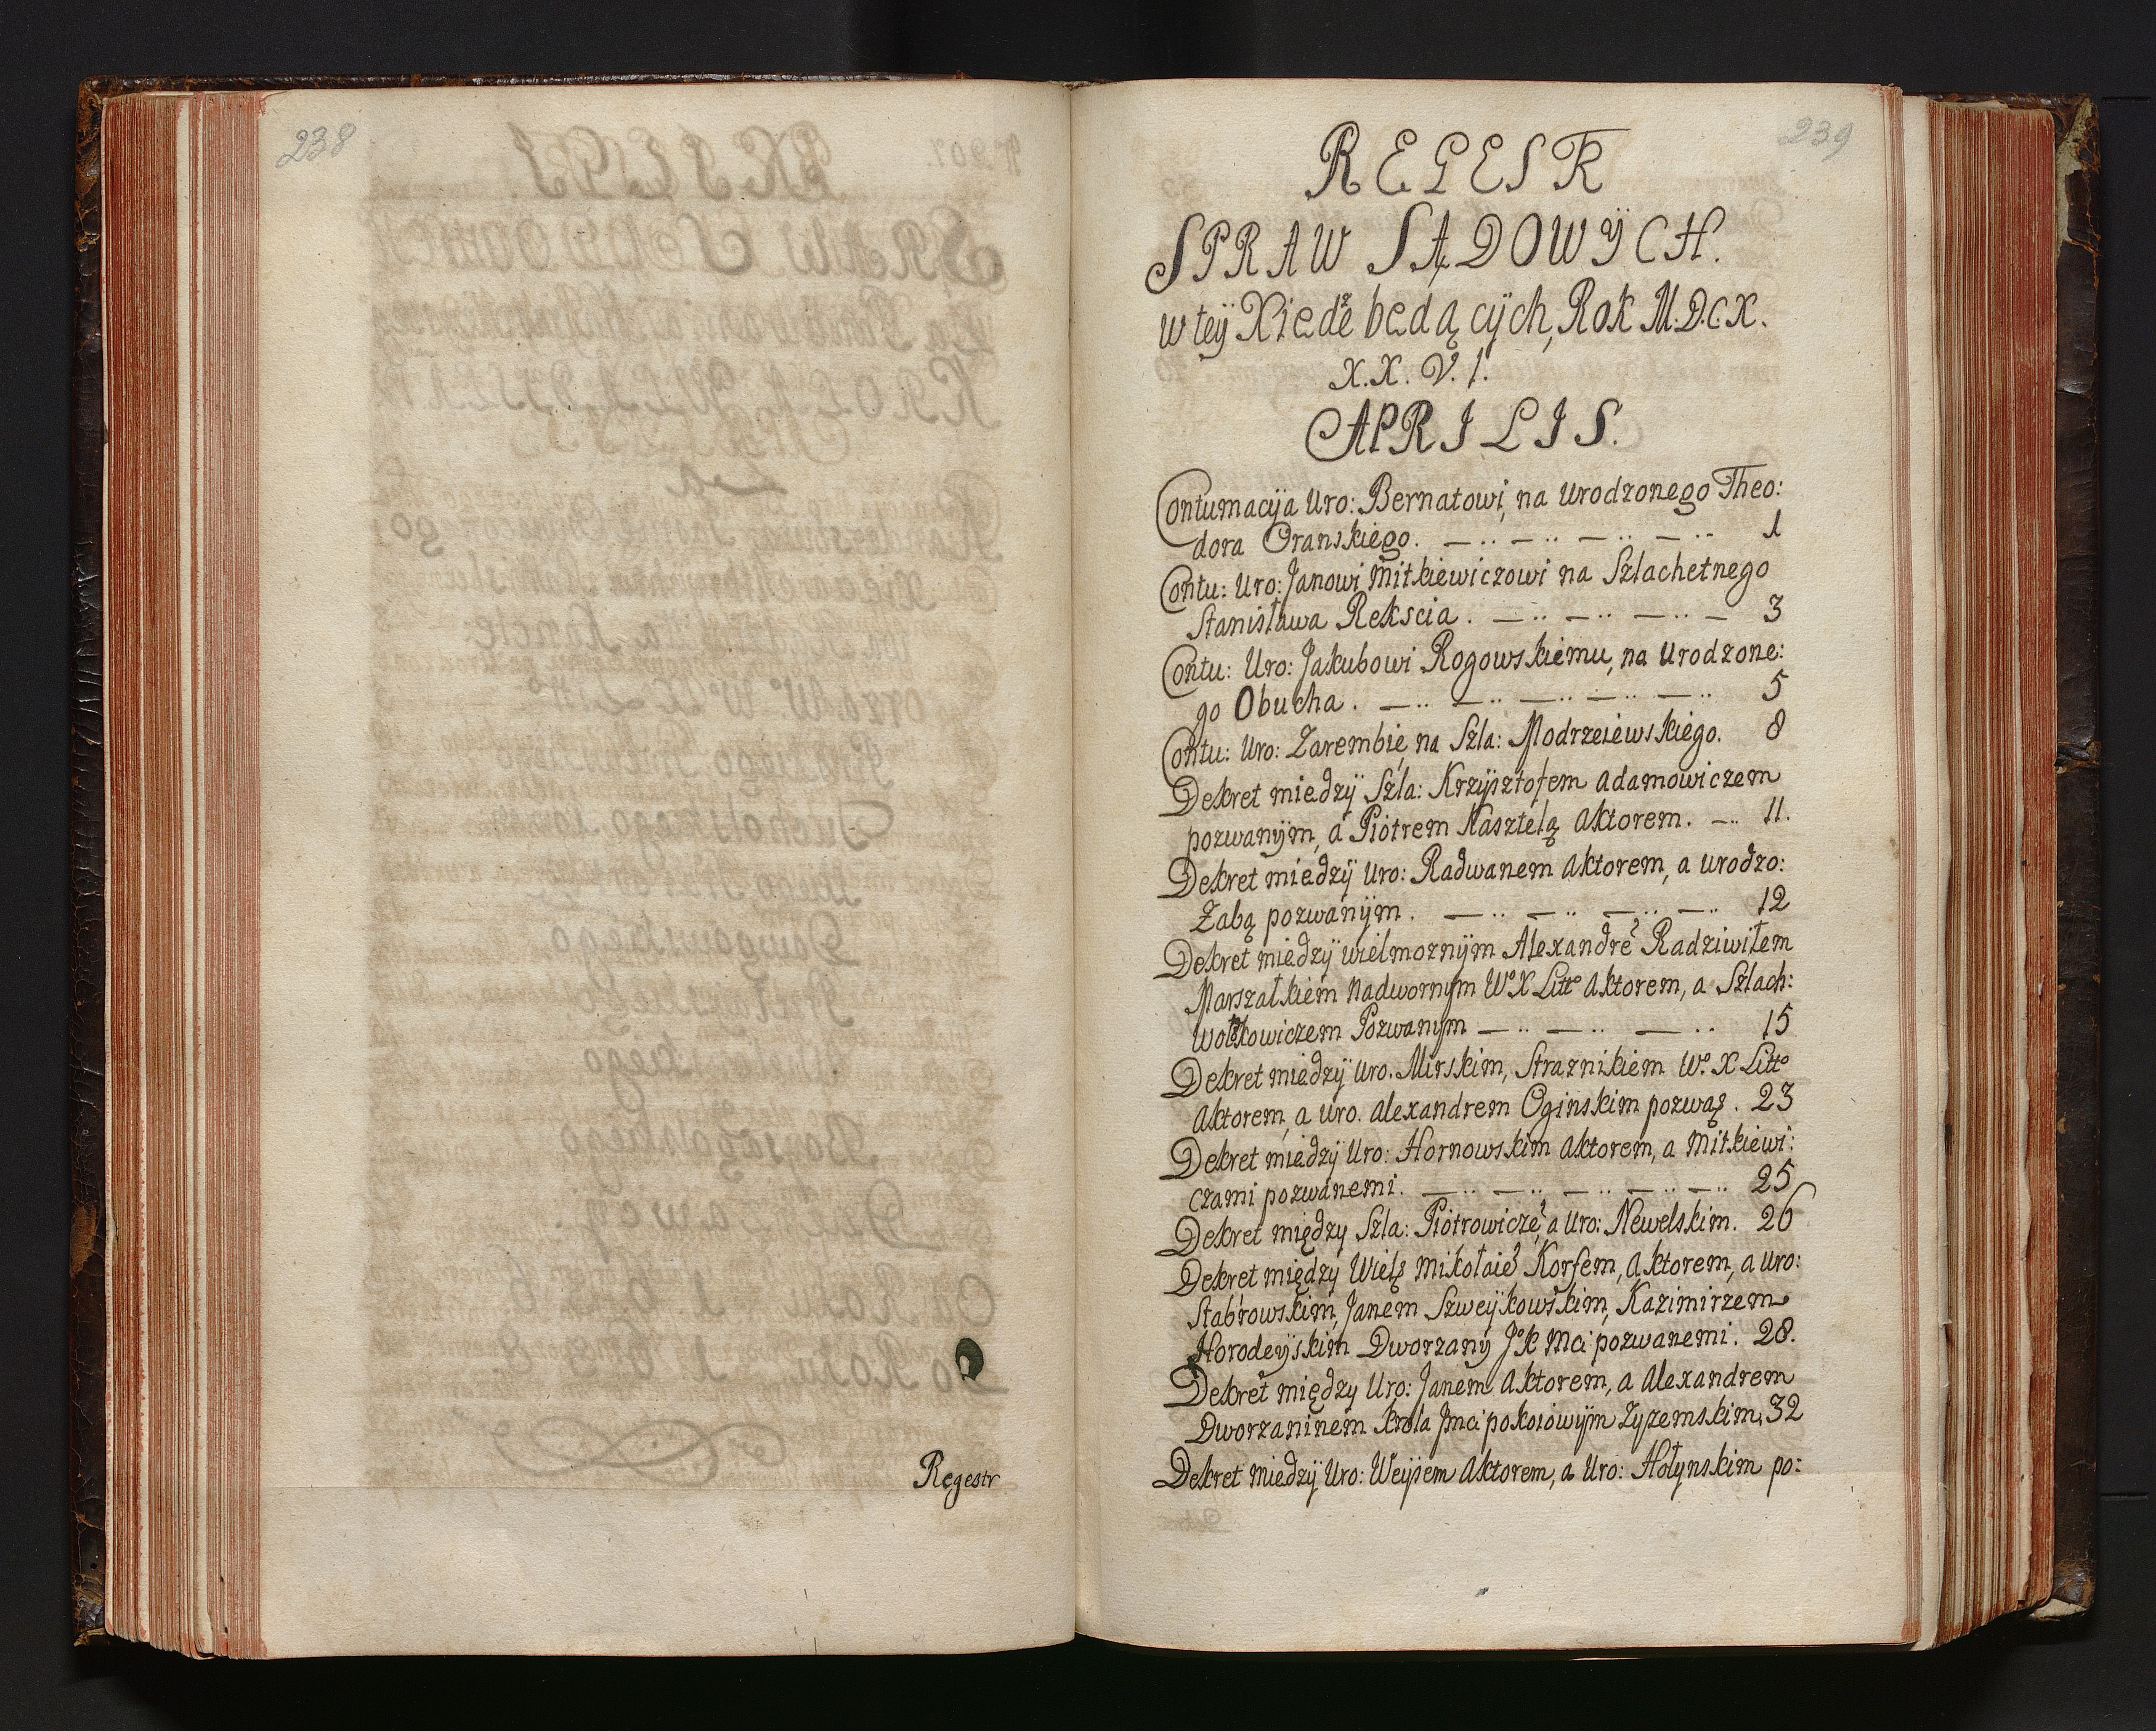 238
Regestr
239
REGESTR
SPRAW SĄDOWŸCH.
w teÿ Xiedze bedącÿch, Rok M.D.C.X.
X.X.V.I.
APRILIS.
Contumacÿa Uro: Bernatowi, na Urodzonego Theo:
dora Oranskiego. — .. — .. — .. — .. 1
Contu: Uro: Janowi Mitkiewiczowi na Szlachetnego
Stanisława Rekscia. — .. — .. — .. — 3
Contu: Uro: Jakubowi Rogowskiemu, na Urodzone:
go Obucha. — .. — .. — .. — .. — .. 5
Contu: Uro: Zarembie, na Szla: Modrzeiewskiego. 8
Dekret miedzÿ Szla: Krzÿsztofem Adamowiczem
pozwanÿm, a Piotrem Kasztelą Aktorem. — .. 11.
Dekret miedzÿ Uro: Radwanem Aktorem, a Urodzo:
Zabą pozwanÿm. — .. — .. — .. — .. 12
Dekret miedzÿ wielmoznÿm Alexandrẽ Radziwiłem
Marszałkiem Nadwornym Wº X Littº Aktorem, a Szlach:
Pozwanym — .. — .. — .. 15
Dekret miedzÿ Uro. Mirskim, Straznikiem Wº. X Littº
Aktorem, a Uro. Alexandrem Oginskim pozwaz. 23
Dekret miedzÿ Uro: Hornowskim Aktorem, a Mitkiewi:
czami pozwanemi. — .. — .. — .. — .. — .. 25
Dekret między Szla: Piotrowiczẽ, a Uro: Newelskim. 26
Dekret między Wielz Mikołaiẽ Korfem, Aktorem, a Uro:
Stabrowskim, Janem Szweÿkowskim, Kazimirzem
Horodeÿskim Dworzany Jº K Mci pozwanemi. 28.
Dekret między Uro: Janem Aktorem, a Alexandrem
Dworzaninem Krola Jmci pokoiowÿm Zyzemskim. 32
Dekret miedzÿ Uro: Weÿsem Aktorem, a Uro: Hołynskim po: